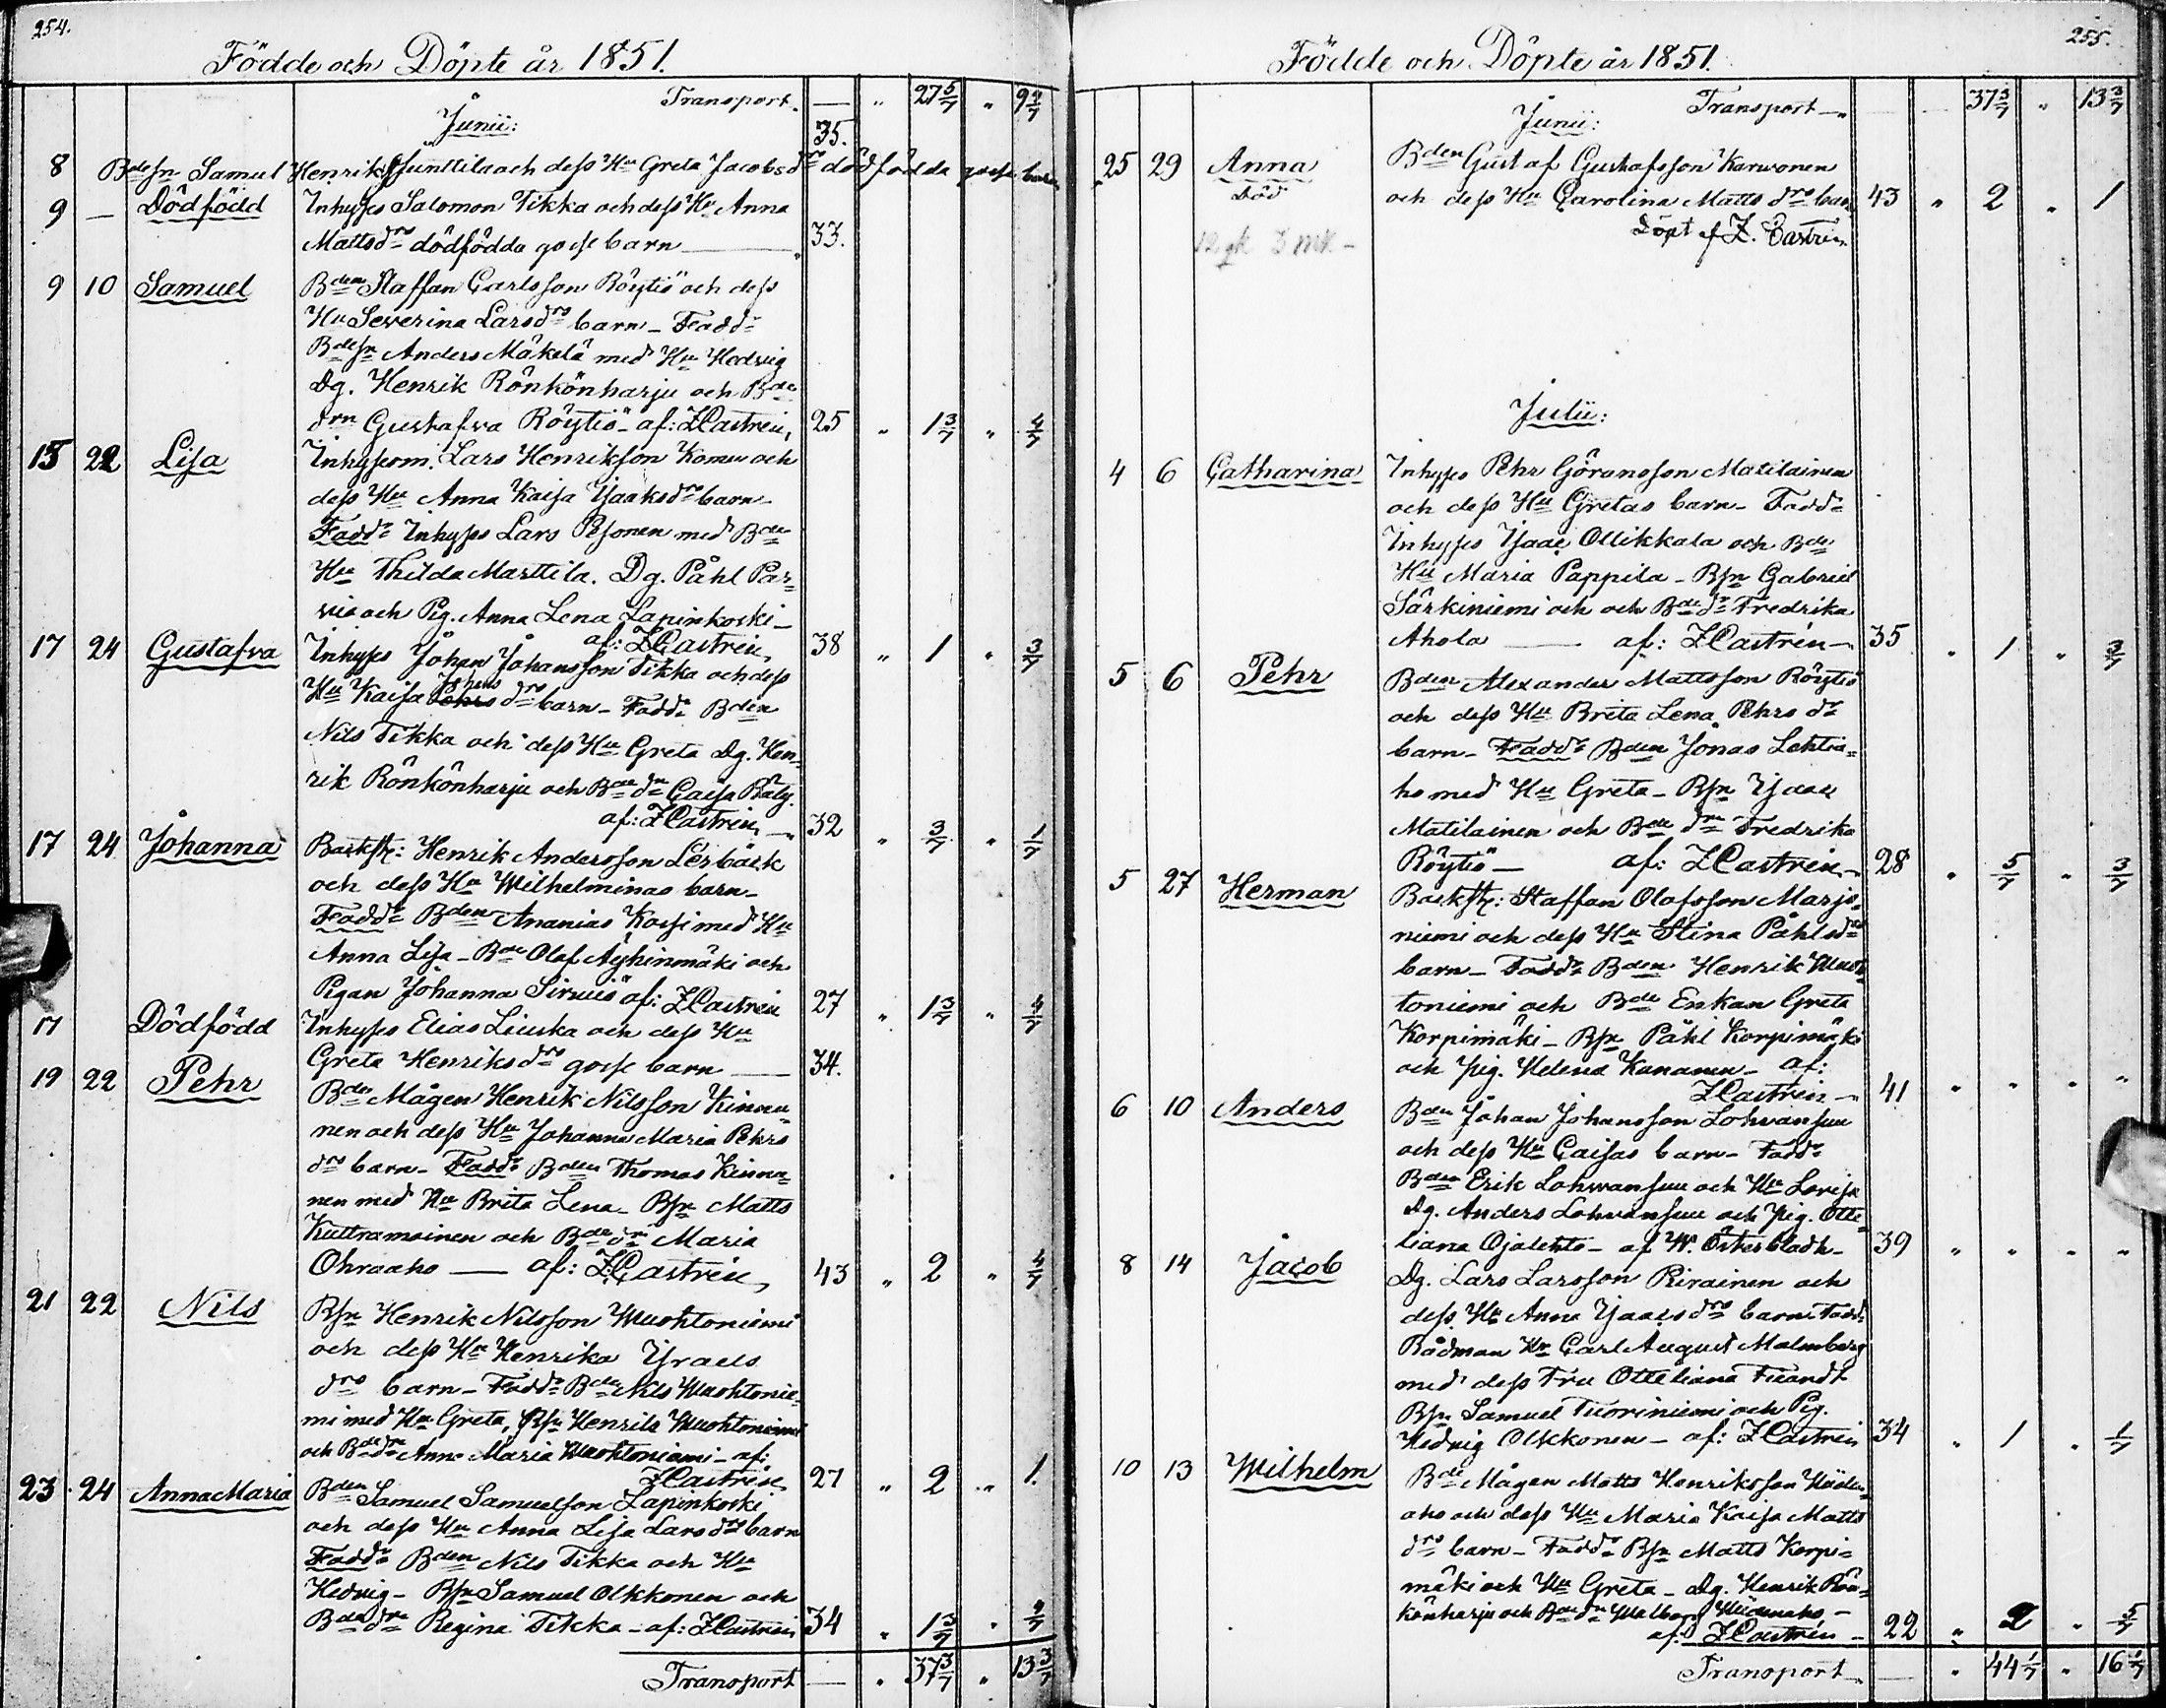 254.
Födde och Döpte år 1851.
Transport. — " 27 5/7 "
Junii:
35.
8 Bdesn Samuel Henriksson Junttila och dess Hu Greta Jacobsdrs dödfödda gosse barn
9 — Dödfödd Inhyses Salomon Tikka och dess Hu Anna
Mattsdrs dödfödda gosse barn — 33.
9 10 Samuel Bden Staffan Carlsson Röytiö och dess
Hu Severina Larsdrs barn – Fadd:
Bdesn Anders Mäkelä med Hu Hedvig
Dg. Henrik Rönkönharju och Bde
drn Gustafva Röytiö – af: Z Castrén, 25 " 1 3/7 " 4/7
15 22 Lisa Inhysesm. Lars Henrikson Komu och
dess Hu Anna Kaisa Isaksdrs barn
Fadd: Inhyses Lars Pesonen med Bde
Hu Thilda Marttila. Dg. Påhl Par-
via och Pig. Anna Lena Lapinkoski –
af: Z Castrén, 38 " 1 " 3/7
17 24 Gustafva Inhyses Johan Johansson Tikka och dess
Hu Kaisa Johans drs barn – Fadd: Bden
Nils Tikka och dess Hu Greta Dg. Hen-
rik Rönkönharju och Bde dn Caisa Räly.
af: Z Castrén — 32 " 3/7 " 1/7
17 24 Johanna Backst: Henrik Andersson Lerbäck
och dess Hu Wilhelminas barn –
Fadd: Bden Ananias Kossi med Hu
Anna Lisa – Bde Olof Äyhinmäki och
Pigan Johanna Sirviö af: Z Castrén 27 " 1 3/7 " 4/7
17 Dödfödd Inhyses Elias Liuska och dess Hu
Greta Henriksdrs gosse barn — 34.
19 22 Pehr Bde Mågen Henrik Nilsson Kinnu-
nen och dess Hu Johanna Maria Pehrs
drs barn – Fadd: Bden Thomas Kinnu-
nen med Hu Brita Lena – Bsn Matts
Kuttramoinen och Bde dn Maria
Ohraaho — af: Z. Castrén, 43 " 2 " 4/7
21 22 Nils Bsn Henrik Nilsson Wuohtoniemi
och dess Hu Henrika Israels
drs barn – Fadd: Bden Nils Wuohtonie-
mi med Hu Greta, Bsn Henrik Wuohtoniemi
och Bde dn Anna Maria Wuohtoniemi – af:
Z Castrén 27 " 2 " 1.
23 24 Anna Maria Bden Samuel Samuelson Lapinkoski
och dess Hu Anna Lisa Lars drs barn
Fadd: Bden Nils Tikka och Hu
Hedvig – Bsn Samuel Olkkonen och
Bde dn Regina Tikka – af: Z Castrén 34 " 1 3/7 "
Transport — " 37 3/7 " 13 3/7
255.
Födde och Döpte år 1851.
Transport — 37 3/7 " 13 3/7
Junii:
25 29 Anna Bden Gustaf Gustafsson Karvonen
Död och dess Hu Carolina Matts drs barn 43 " 2 " 1
Döpt af Z. Castrén
Julii:
4 6 Catharina Inhyses Pehr Göransson Matilainen
och dess Hu Gretas barn – Fadd:
Inhyses Isaac Ollikkala och Bde
Hu Maria Pappila – Bsn Gabriel
Särkiniemi och och Bde dr Fredrika
Ahola — af: Z Castrén — 35 " 1 " 3/7
5 6 Pehr Bden Alexander Mattsson Röytiö
och dess Hu Brita Lena Pehrs dr
barn – Fadd: Bden Jonas Lehtia-
ho med Hu Greta – Bsn Isaac
Matilainen och Bde drn Fredrika
Röytiö — af: Z Castrén – 28 " 5/7 " 3/7
5 27 Herman Backst: Staffan Olofsson Marjo-
niemi och dess Hu Stina Påhlsdrs
barn – Fadd: Bden Henrik Wuoh-
toniemi och Bde Enkan Greta
Korpimäki – Bsn Påhl Korpimäki
och pig. Helena Kananen – af:
Z Castrén — 41 " " " "
6 10 Anders Bden Johan Johansson Lohvansuu
och dess Hu Caisas barn – Fadd:
Bden Erik Lohvansuu och Hu Lovisa
Dg. Anders Lohvansuu och pig. Otte-
liana Ojalehto – af W. Österbladh – 39 " " " "
8 14 Jacob Dg. Lars Larsson Pirainen och
dess Hu Anna Isaacsdrs barn Fadd:
Rådman Hr Carl August Malmberg
med dess Fru Otteliana Frandt
Bsn Samuel Tuoriniemi och Pig.
Hedvig Olkkonen – af: Z Castrén 34 " 1 " 1/7
10 13 Wilhelm Bde Mågen Matts Henriksson Hiiden-
aho och dess Hu Maria Kaisa Matts
drs barn – Fadd: Bsn Matts Korpi-
mäki och Hu Greta – Dg. Henrik Rön-
könharju och Bde dn Walborg Hiidenaho –
af: Z Castrén – 22 " 2 " 5/7
Transport — " 44 1/7 " 16 4/7